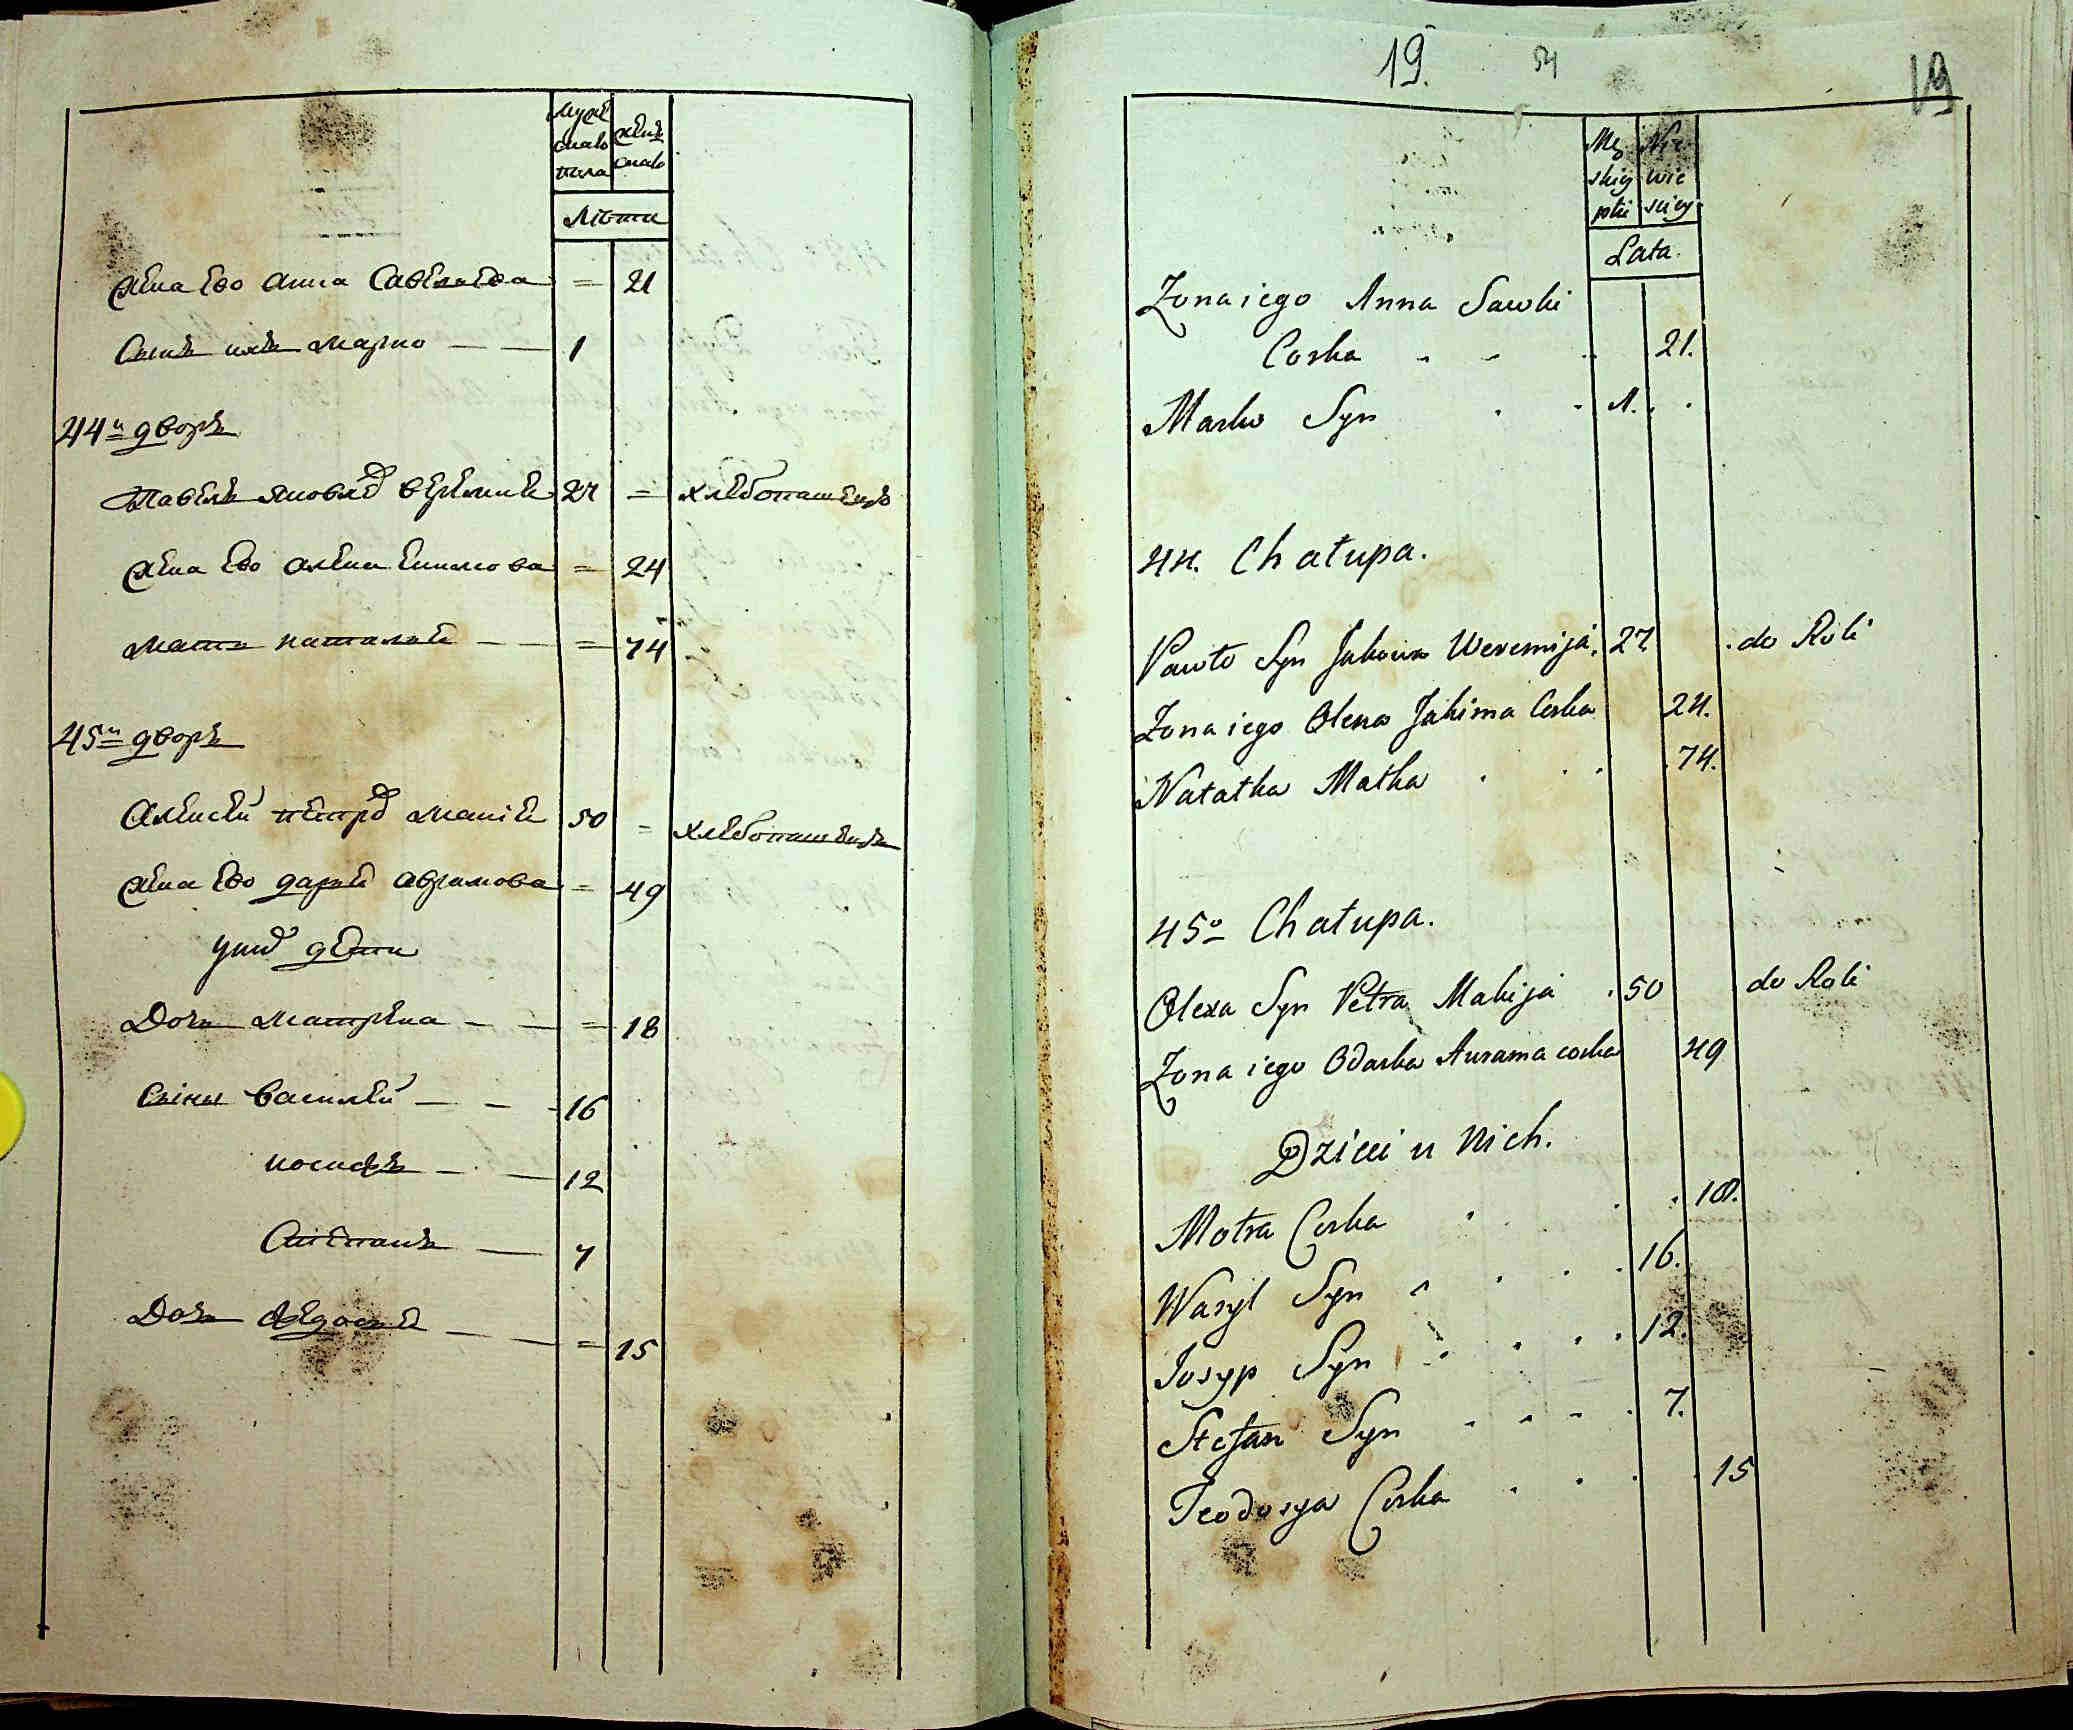 мужѣ
ска
пола
женѣ
ска
Лѣты
жена Ево анна Савелиева = 21
Сынъ ихъ марко — — 1
44й дворъ
Павелъ яковлев веремий 27 = хлѣбопашецъ
жена Ево алена Екимова = 24
мати наталия — = 74
45й дворъ
Алексей петров макией 50 = хлѣбопашецъ
жена Ево дария аврамова = 49
у них дети
Дочь матрена — — = 18
Сыны василей — — 16
иосифъ — — 12
Степанъ — 7
Дочь Федосия — — = 15
19. 54 19
Mę
skiey
płci
Nie
wie
sciey
Lata.
Zona iego Anna Sawki
Corka 21.
Marko Syn 1.
44. Chałupa.
Pawło Syn Jakowa Weremija. 27 do Roli
Zona iego Olena Jakima Corka 24.
Natałka Matka 74.
45o Chałupa.
Olexa Syn Petra Makija 50 do Roli
Zona iego Odarka Awrama corka 49
Dzieci u Nich.
Motra Corka 18.
Wasyl Syn 16.
Josyp Syn 12.
Stefan Syn 7.
Teodosya Corka 15